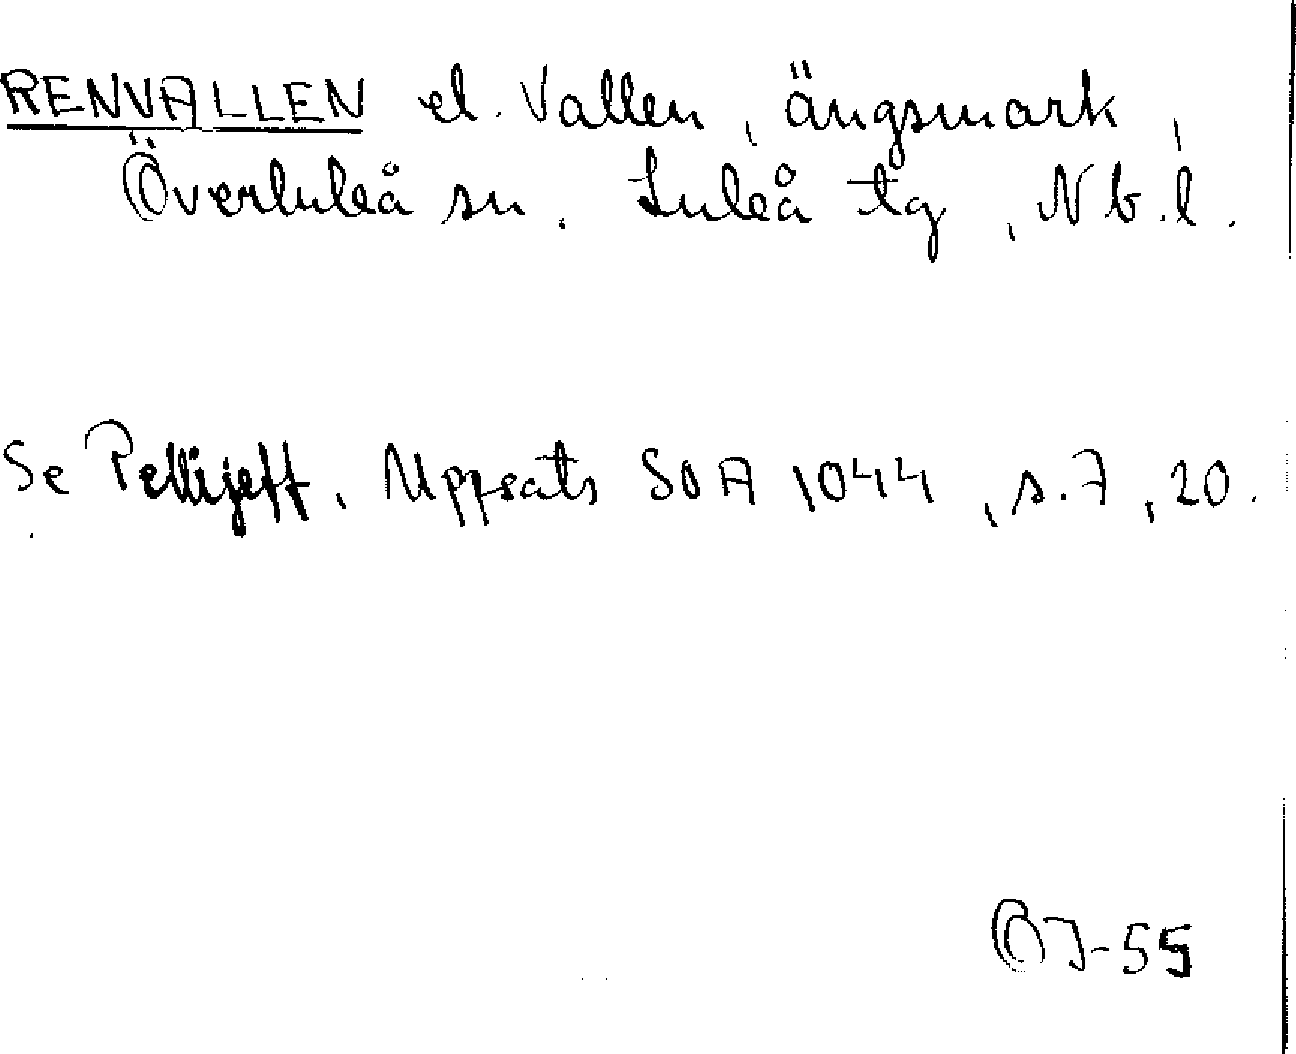 RENVALLEN el. Vallen, ängsmark,
Överluleå sn. Luleå tg, Nb.l.
Se Pellijeff, Uppsats SOA 1044, s.7, 20.
OJ-55